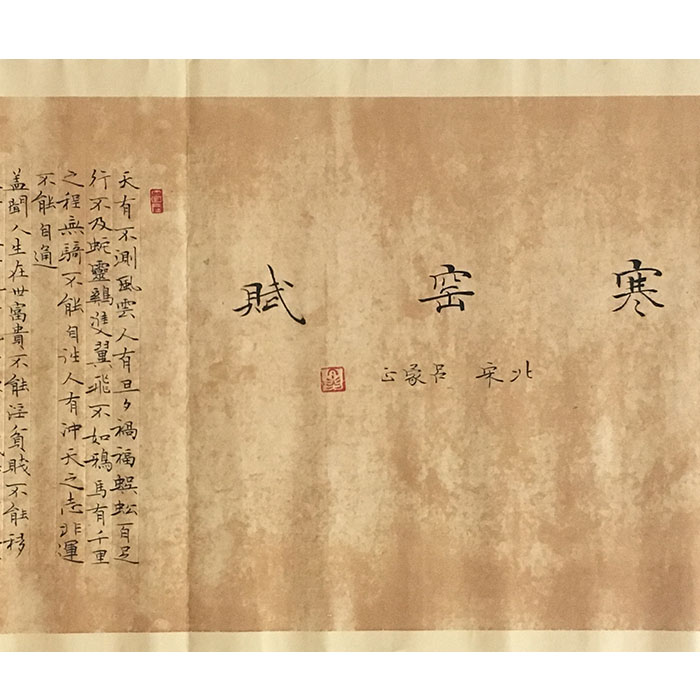 寒窑賦
北宋 吕蒙正
天有不測風雲人有旦夕禍福蜈蚣百足
行不及蛇靈鷄雙翼飛不如鴉馬有千里
之程無騎不能自往人有沖天之志非運
不能自通
盖聞人生在世富貴不能淫貧賤不能移